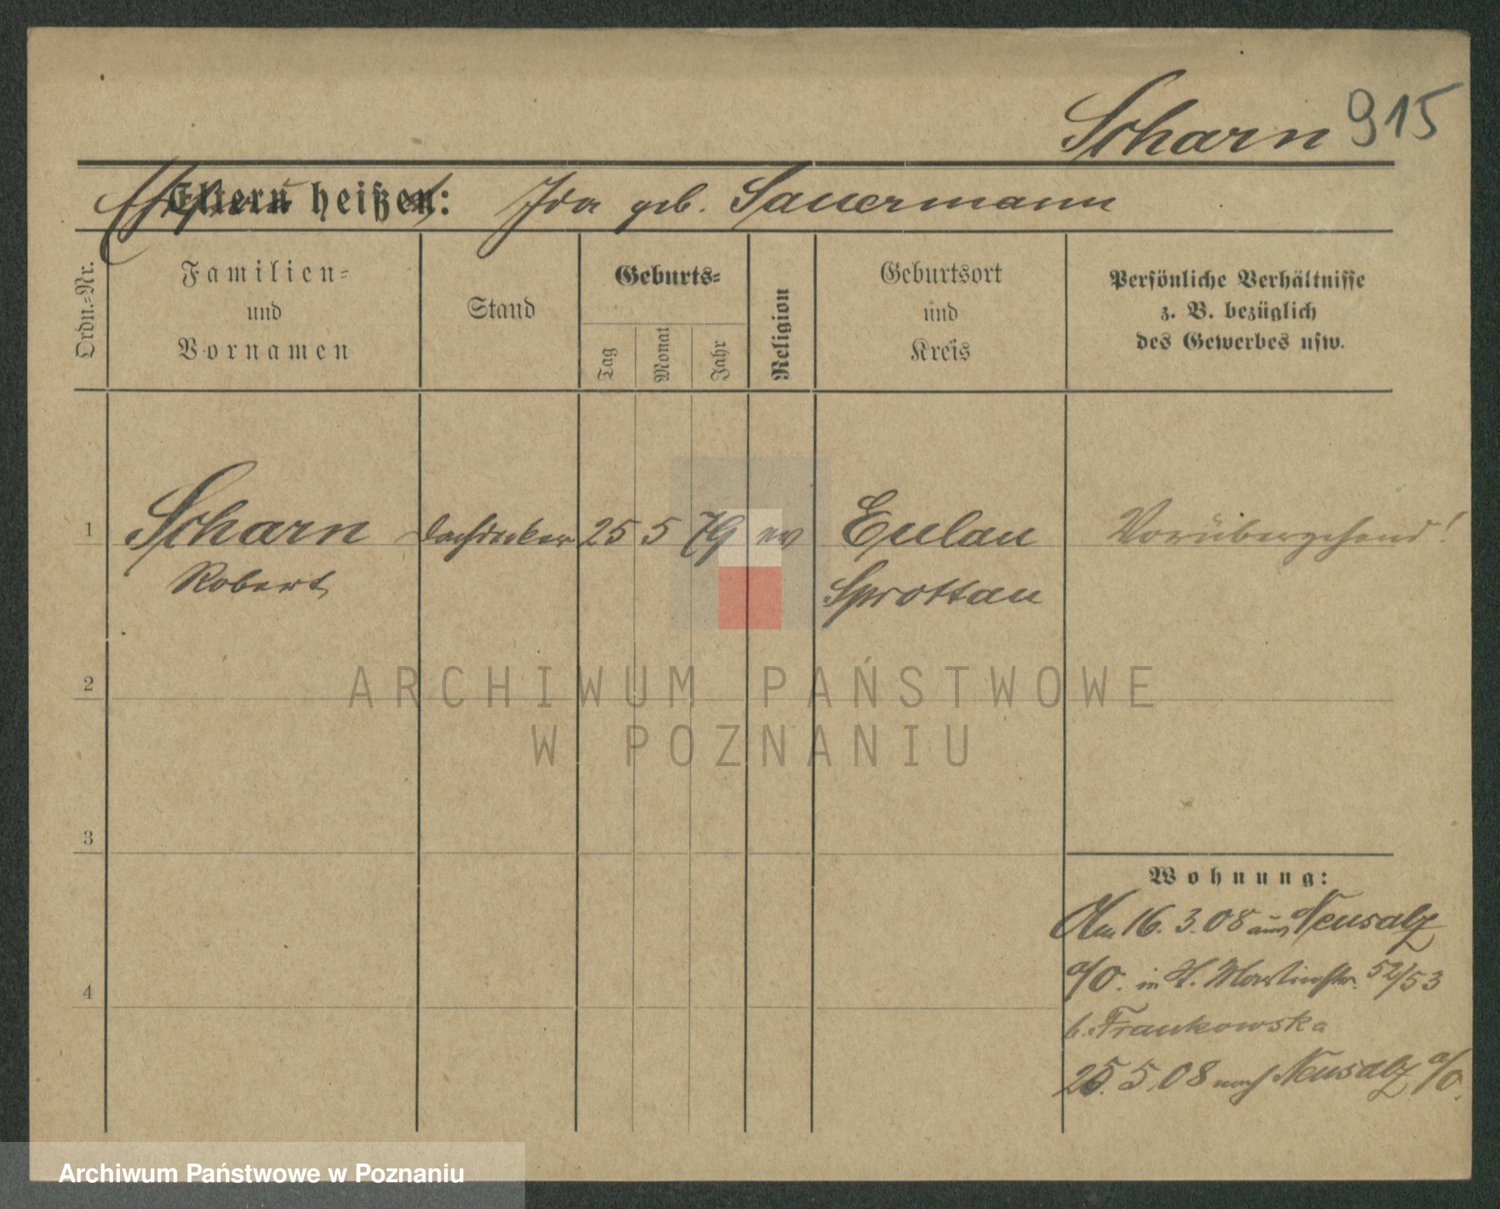 Scharn 915
Ehefrau heißt: Ida geb. Sauermann
Eltern heißen:
Ordn.=Nr.
Familien=
und
Vornamen
Stand
Geburts=
Tag
Monat
Jahr
Religion
Geburtsort
und
Kreis
Persönliche Verhältnisse
z. B. bezüglich
des Gewerbes usw.
1 Scharn Dachdecker 25 5 79 ev Eulau Vorübergehend!
Robert Sprottau
2
3
4
Wohnung:
Am 16. 3. 08 aus Neusalz
a/O. in St. Martinstr. 52/53
b. Frankowska
25. 5. 08 nach Neusalz a/O.
ARCHIWUM PAŃSTWOWE
W POZNANIU
Archiwum Państwowe w Poznaniu